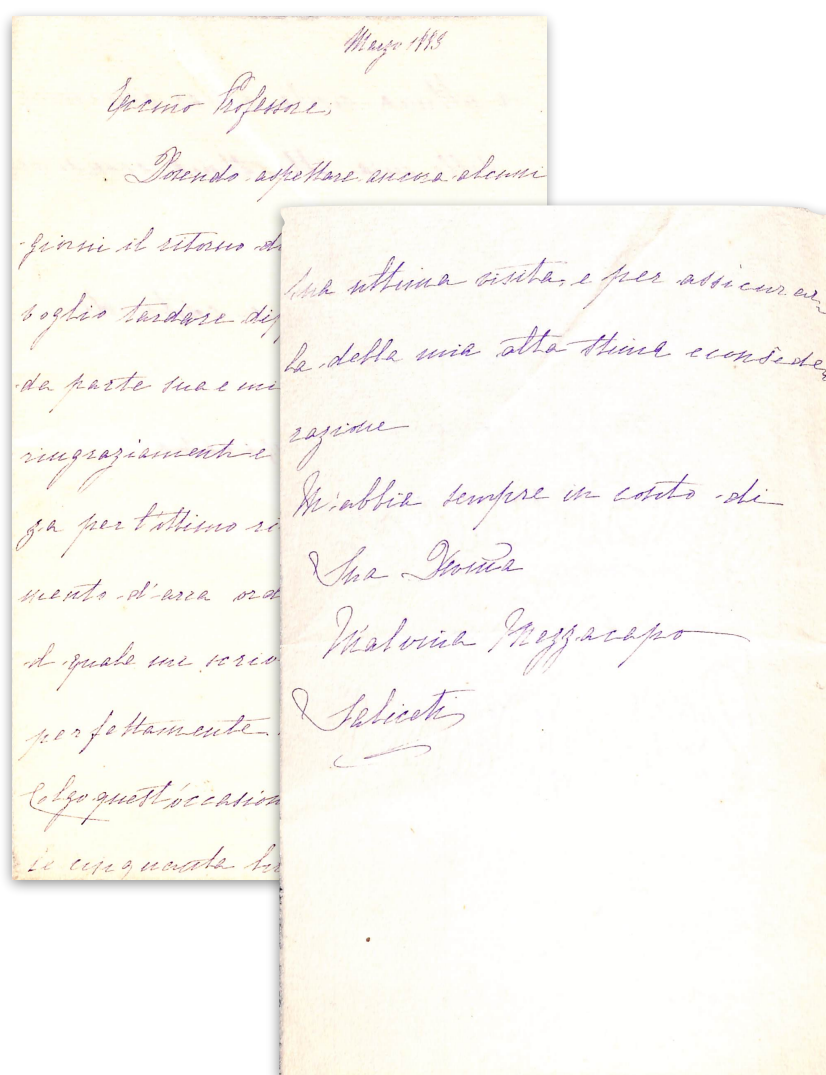 Marzo 1893
Eccmo Professore,
Dovendo aspettare ancora alcuni
giorni il ritorno d
voglio tardare di
da parte sua e mi
ringraziamenti e
za per l'ottimo ri
mento d'aria
il quale me scriv
perfettamente
Colgo quest'occasion
le cinquanta li
Sua ultima visita, e per assicurar-
la della mia alta stima e conside
razione
M'abbia sempre in conto di
Sua Devma
Malvina Mezzacapo
Saliceti